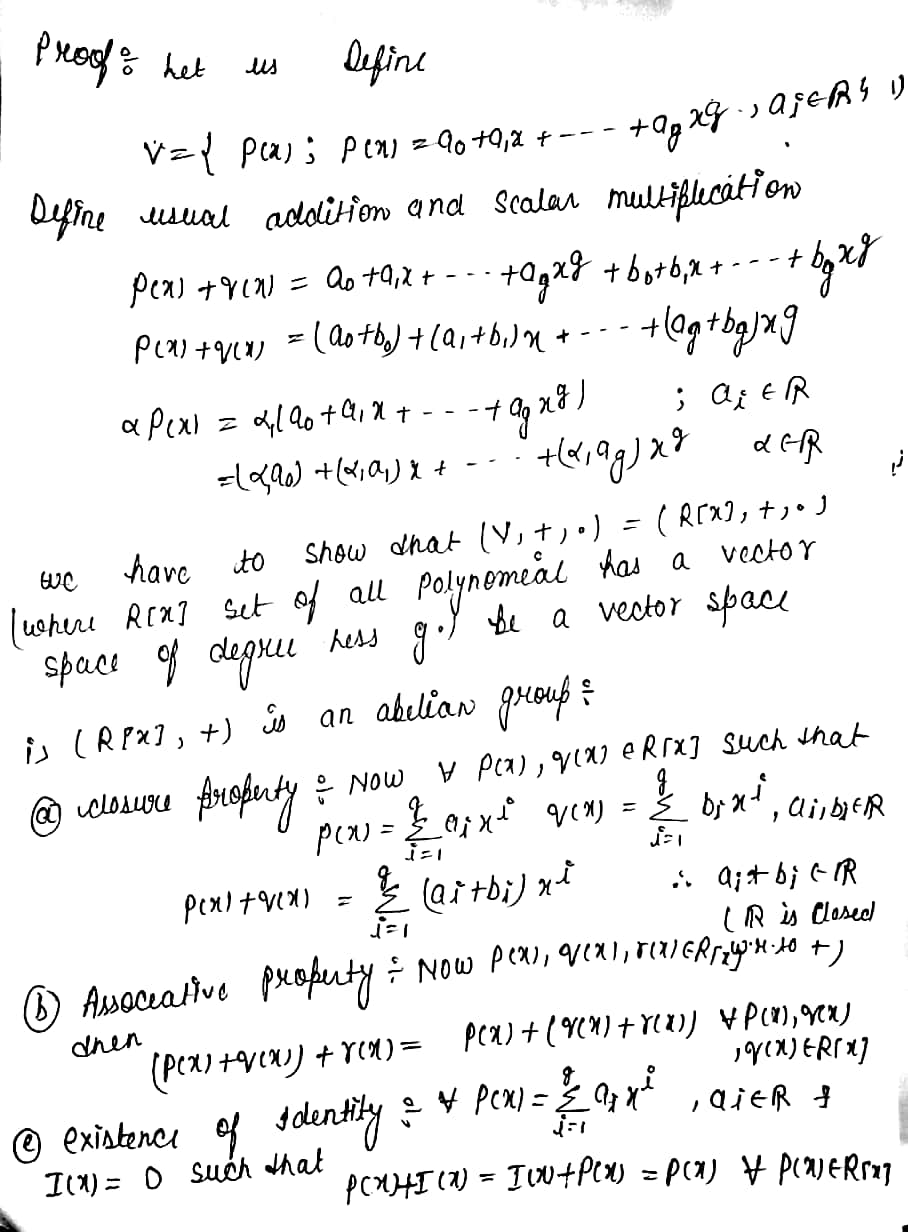 Proof: Let us Define
V = { P(x) ; P(x) = a₀ + a₁x + --- + a₉x⁹ ., aⱼ ∈ ℝ } 1)
Define usual addition and scalar multiplication
P(x) + q(x) = a₀ + a₁x + --- + a₉x⁹ + b₀ + b₁x + --- + b₉x⁹
P(x) + q(x) = (a₀ + b₀) + (a₁ + b₁)x + --- + (a₉ + b₉)x⁹
α P(x) = α₁(a₀ + a₁x + --- + a₉x⁹) ; aᵢ ∈ ℝ
= (α₁a₀) + (α₁a₁)x + --- + (α₁a₉)x⁹ α ∈ ℝ
we have to show that (V, +, ·) = (R[x], +, ·)
(where R[x] set of all polynomeal has a vector
space of degree less 9.) be a vector space
is (R[x], +) is an abelian group:
(a) closure property: Now ∀ P(x), q(x) ∈ R[x] such that
P(x) = ⁹Σᵢ₌₁ aᵢxⁱ q(x) = ⁹Σᵢ₌₁ bᵢxⁱ, aᵢ, bⱼ ∈ ℝ
P(x) + q(x) = ⁹Σᵢ₌₁ (aᵢ + bᵢ)xⁱ ∴ aᵢ + bᵢ ∈ ℝ
(ℝ is closed
(b) Assoceative property: Now P(x), q(x), r(x) ∈ R[x] w.r.to +)
then
(P(x) + q(x)) + r(x) = P(x) + (q(x) + r(x)) ∀ P(x), q(x)
, q(x) ∈ R[x]
(e) existence of Identity: ∀ P(x) = ⁹Σᵢ₌₁ aᵢxⁱ, aᵢ ∈ R ∃
I(x) = 0 such that P(x) + I(x) = I(x) + P(x) = P(x) ∀ P(x) ∈ R[x]